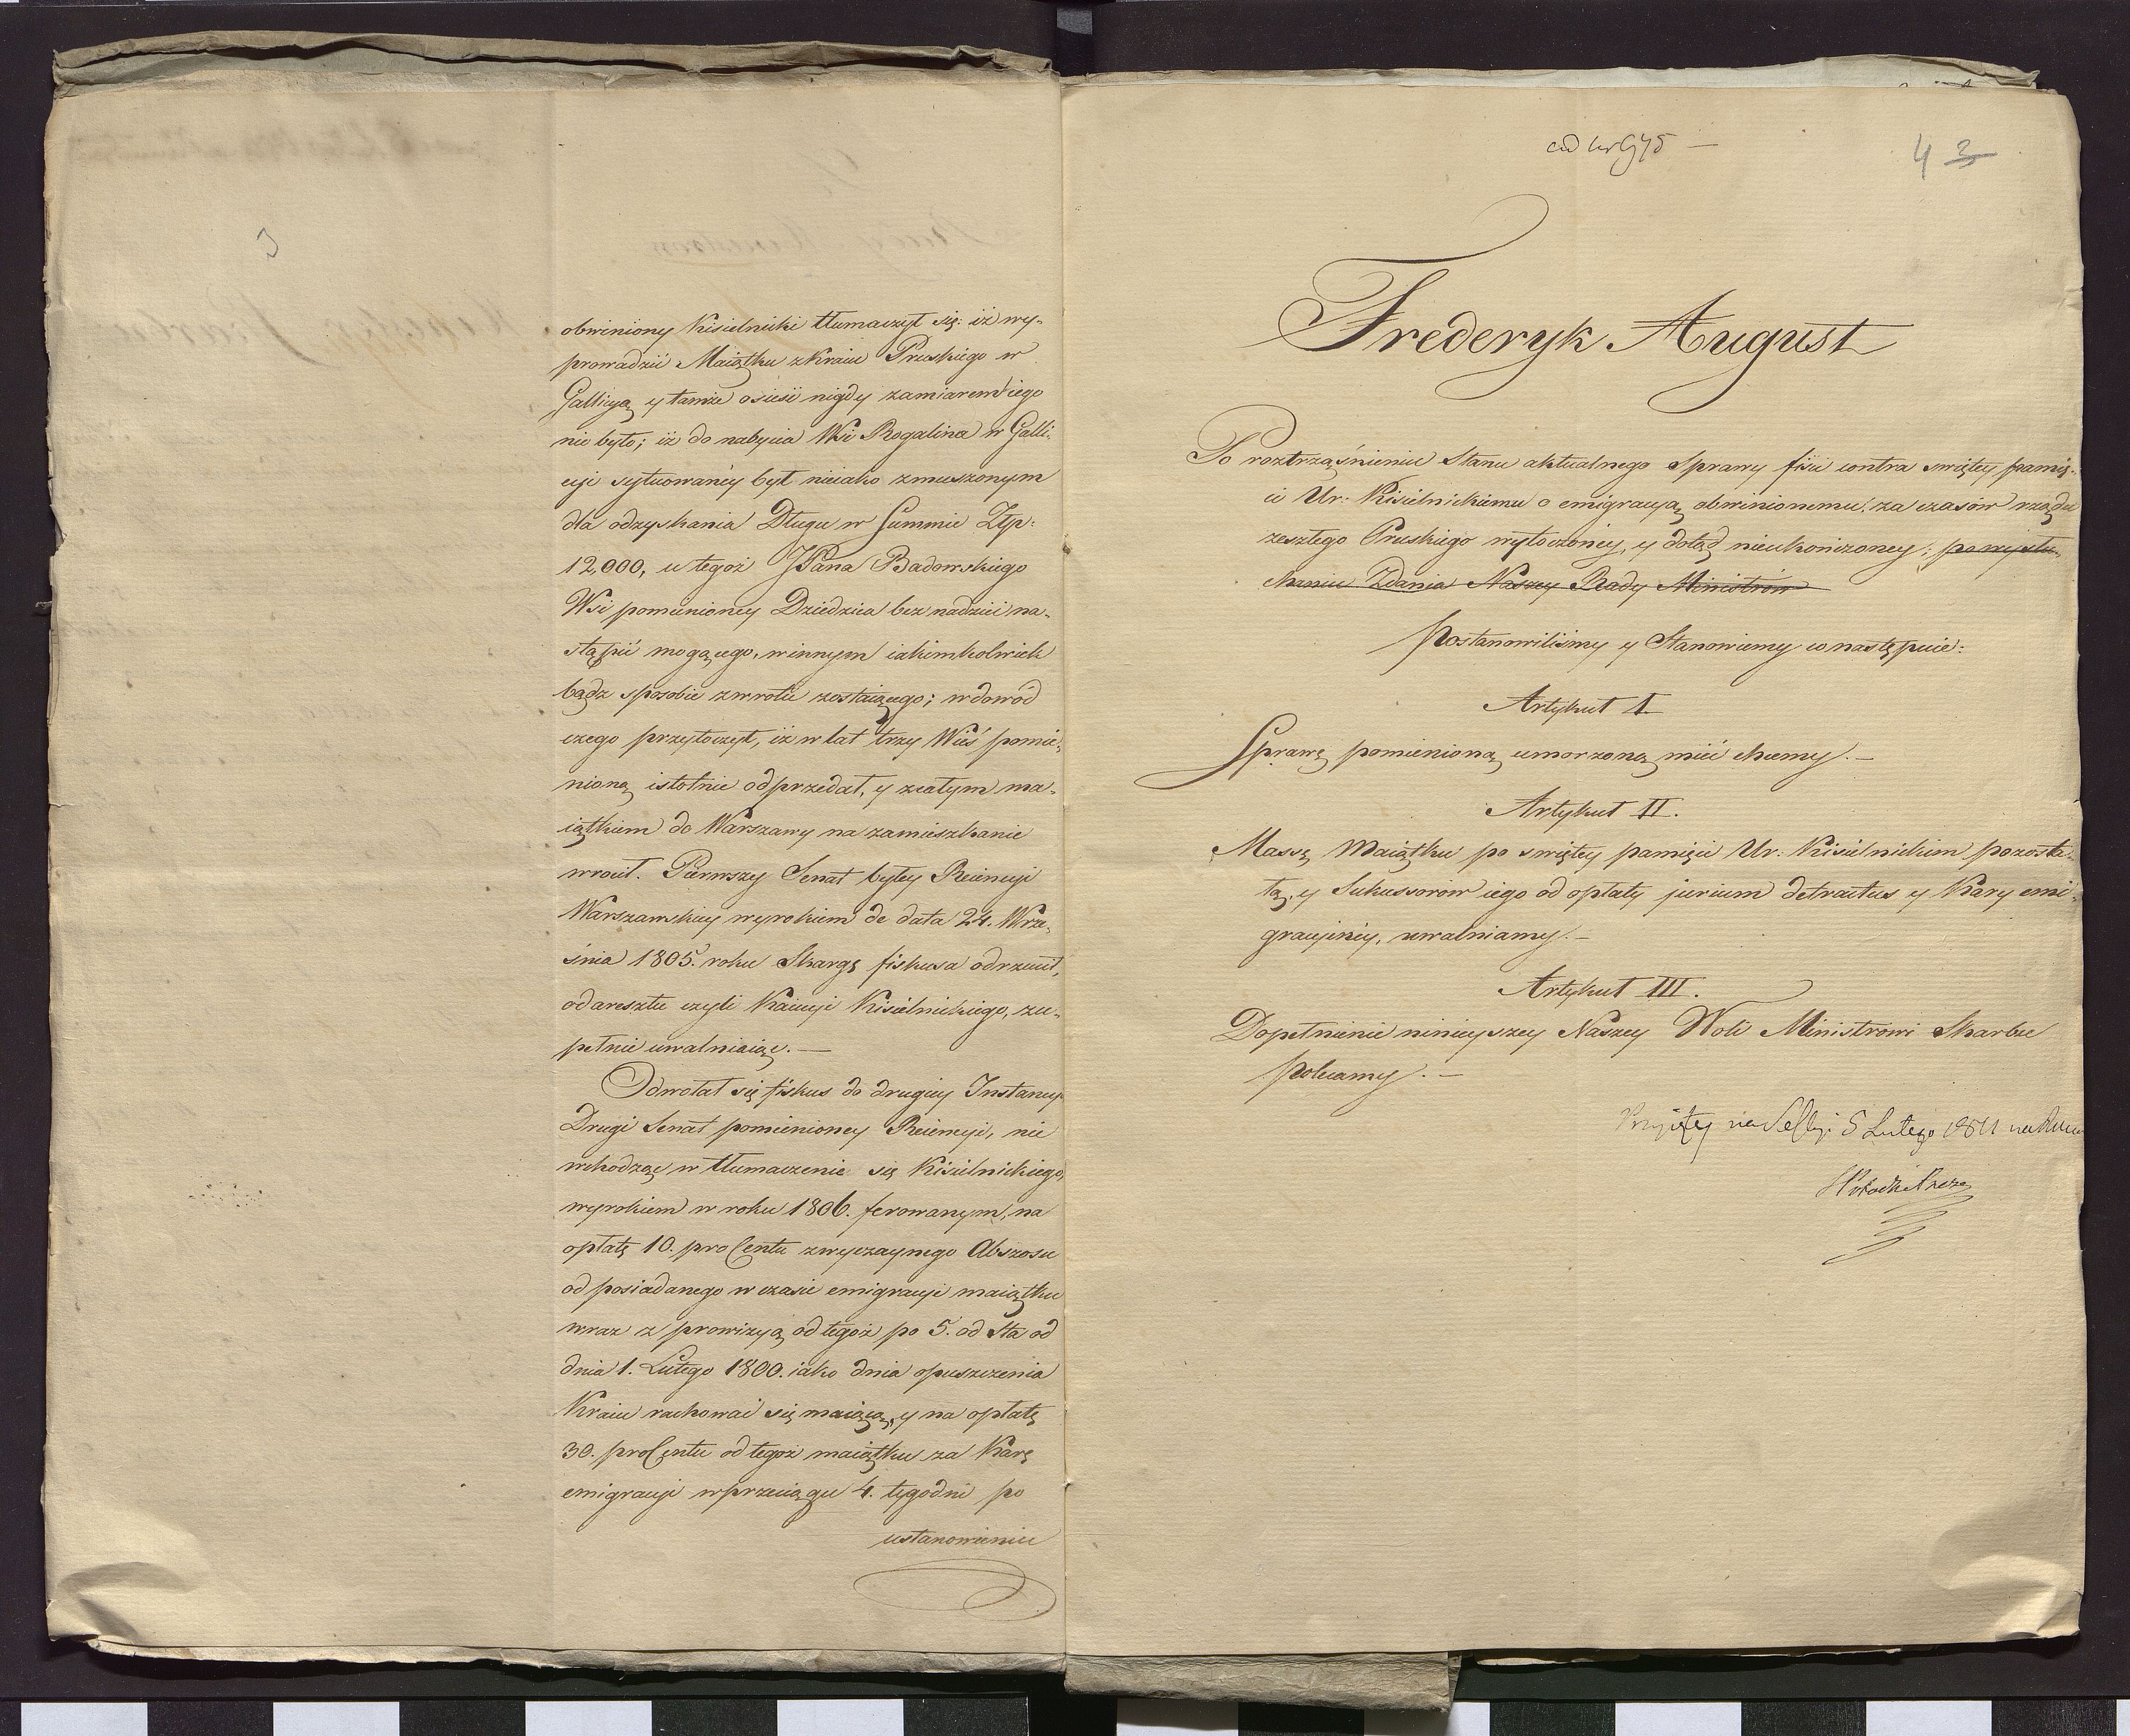 3
obwiniony Kisielnicki tłumaczył się: iż wy-
prowadzić Maiątku z Kraiu Pruskiego w
Gallicyą y tamże osieść nigdy zamiarem iego
nie było; iż do nabycia Wsi Rogalina w Galli-
cyi sytuowanéy był nieiako zmuszonym
dla odzyskania Długu w Summie Złp:
12,000, u tegoż JPana Badowskiego
Wsi pomienioney Dziedzica bez nadziei na-
stąpić mogącego, w innym iakimkolwiek
bądz sposobie zwrotu zostaiącego; w dowód
czego przytoczył, iż w lat trzy Wieś pomie-
nioną istotnie odprzedał, y z całym ma-
iątkiem do Warszawy na zamieszkanie
wrócił. Pierwszy Senat byłey Reiencyi
Warszawskiey wyrokiem de data 24. Wrze-
śnia 1805. roku Skargę fiskusa odrzucił,
od aresztu czyli Kaucyi Kisielnickiego, zu-
pełnie uwalniaiąc. —
Odwołał się fiskus do drugiey Instancyi
Drugi Senat pomienioney Reiencyi, nie
wchodząc w tłumaczenie się Kisielnickiego,
wyrokiem w roku 1806. ferowanym, na
opłatę 10. proCentu zwyczaynego Abszosu
od posiadanego w czasie emigracyi maiątku
wraz z prowizyą od tegoż po 5. od Sta od
dnia 1. Lutego 1800. iako dnia opuszczenia
Kraiu rachować się maiącą, y na opłatę
30. proCentu od tegoż maiątku za Karę
emigracyi w przeciągu 4. tygodni po
ustanowieniu
43
Frederyk August
Po roztrząśnieniu Stanu aktualnego Sprawy fisci contra swiętey pamię-
ci Ur: Kisielnickiemu o emigracyą obwinionemu, za czasów rządu
zeszłego Pruskiego wytoczoney, y dotąd nieukończoney; po wysłu-
chaniu Zdania Naszey Rady Ministrów
Postanowiliśmy y Stanowiemy co następuie:
Artykuł I.
Sprawę pomienioną umorzoną mieć chcemy. —
Artykuł II.
Massę Maiątku po swiętey pamięci Ur. Kisielnickim pozosta-
łą, y Sukcessorów iego od opłaty jurium detractus y Kary emi-
gracyiney, uwalniamy. —
Artykuł III.
Dopełnienie ninieyszey Naszey Woli Ministrowi Skarbu
polecamy. —
5 Lutego 1811